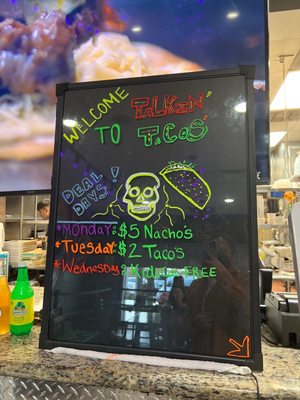 WELCOME
TALKEN'
TO TACOS
DEAL!
DAYS
*Monday: $5 Nacho's
*Tuesday: $2 Taco's
*Wednesday: Kids FREE